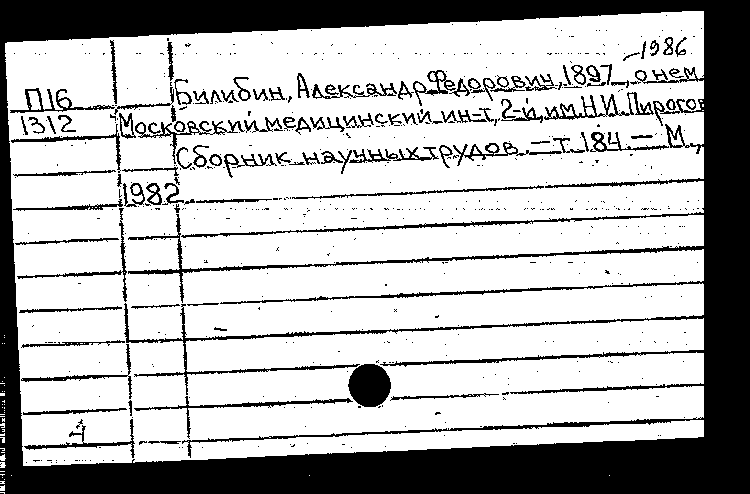 -1986
П16 Билибин, Александр Федорович, 1897 , о нем
1312 Московский медицинский ин-т, 2-й, им. Н.И. Пирогов
Сборник научных трудов. — т. 184. — М.,
1982
4